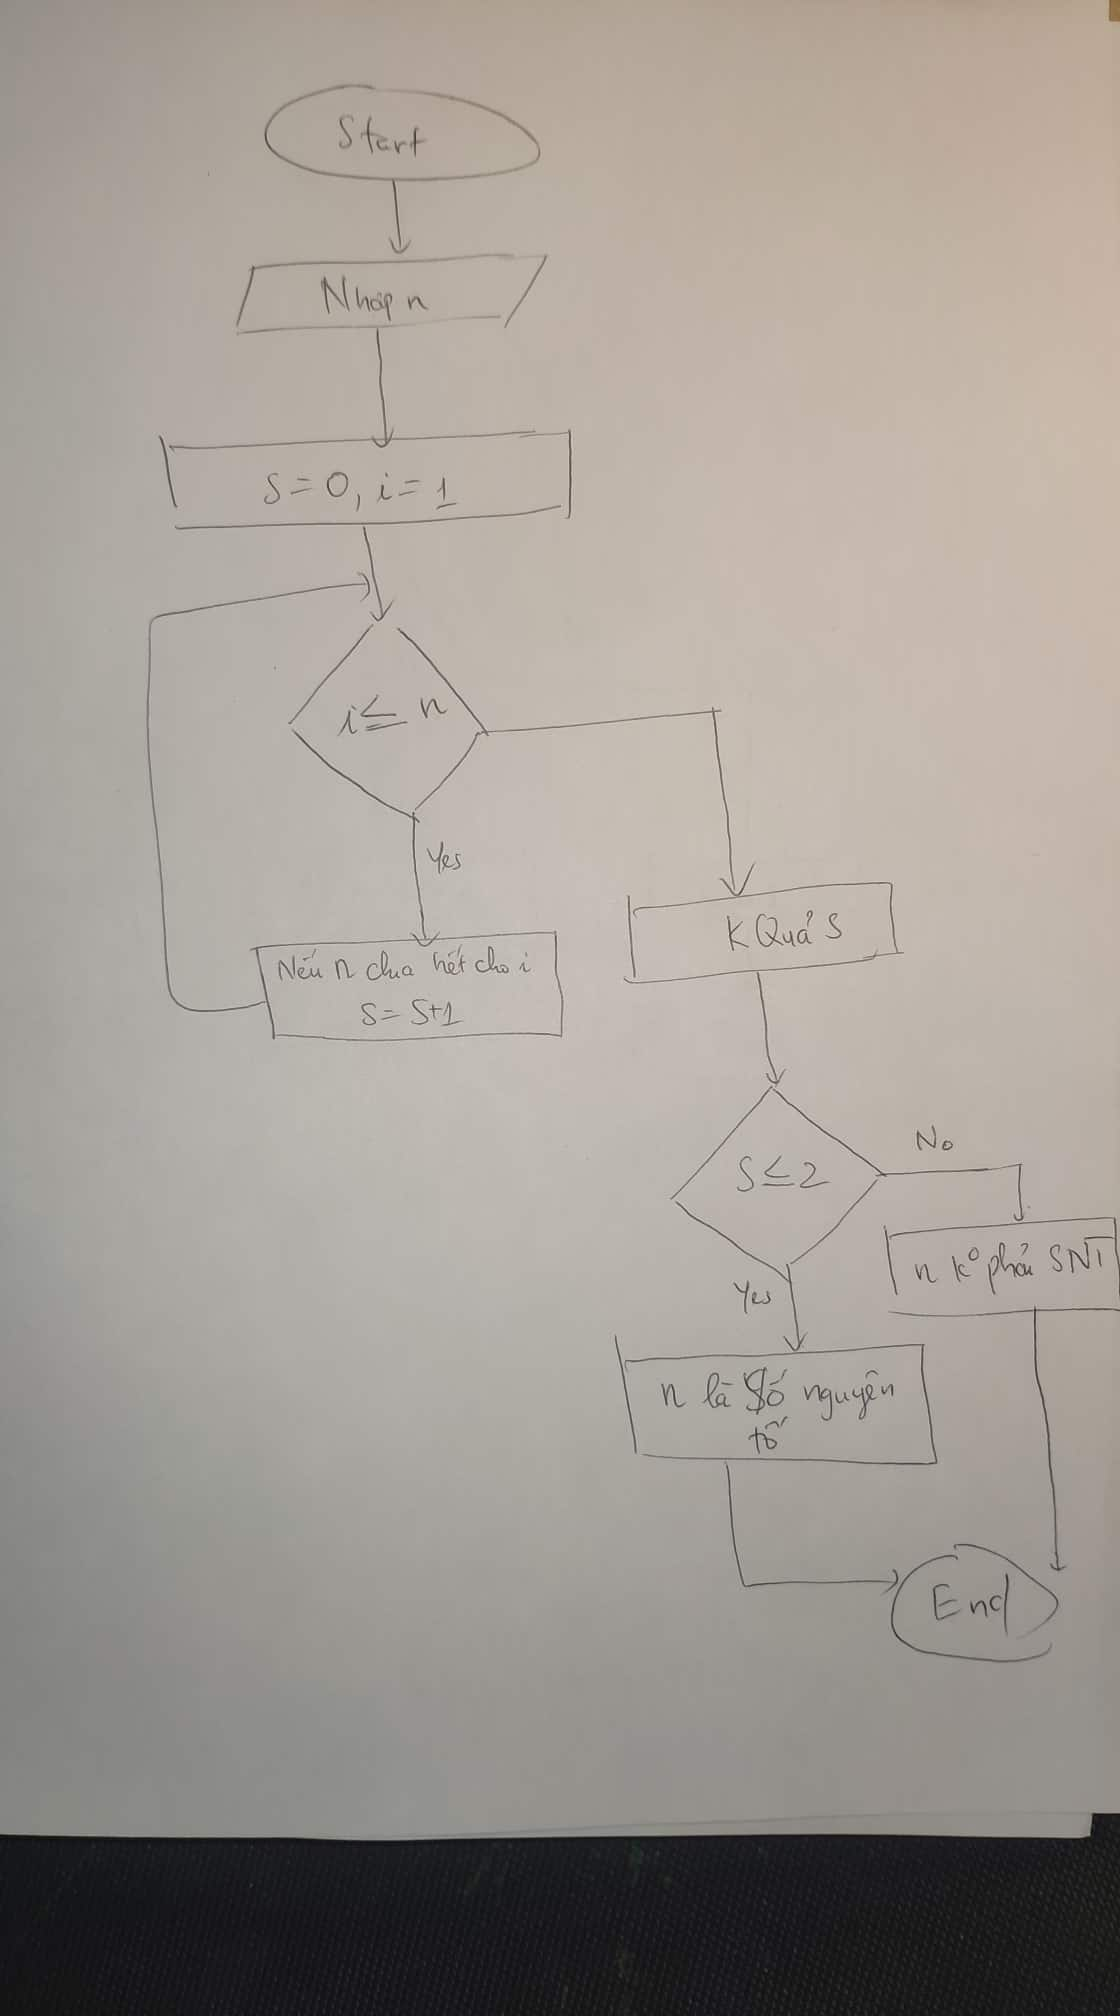 Start
Nhập n
S = 0, i = 1
i ≤ n
Yes
Nếu n chia hết cho i
S = S+1
K Quả S
S ≤ 2
No
Yes
n k° phải SNT
n là Số nguyên
tố
End